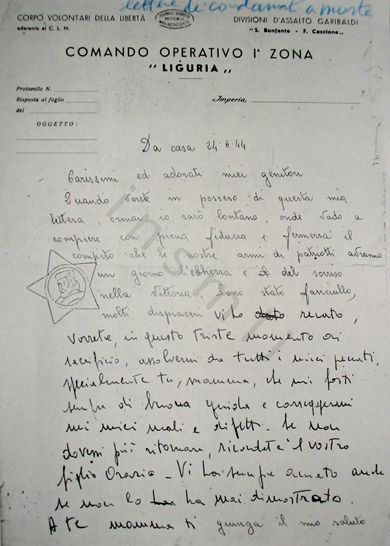 lettere di condannati a morte
CORPO VOLONTARI DELLA LIBERTÀ
aderente al C. L. N.
DIVISIONI D'ASSALTO GARIBALDI
"S. Bonfante - F. Cascione"
COMANDO OPERATIVO Iª ZONA
"LIGURIA"
Protocollo N.
Risposta al foglio
del
OGGETTO:
Imperia,
Da casa 24-6-44
Carissimi ed adorati miei genitori
Quando verete in possesso di questa mia
lettera, ormai io sarò lontano, onde vado a
compiere con piena fiducia e fermezza il
compito che le nostre armi di patrioti avranno
un giorno l'ebbrezza e il del sorriso
nella vittoria. Sono stato fanciullo,
molti dispiaceri vi ho recato,
vorrete, in questo triste momento di
sacrificio, assolvermi da tutti i miei peccati,
specialmente tu, mamma, che mi fosti
sempre di buona guida e correggermi
nei miei mali e difetti. Se non
dovessi più ritornare, ricordate il vostro
figlio Orazio. Vi ha sempre amato anche
se non lo ha mai dimostrato.
A te mamma ti giunga il mio saluto